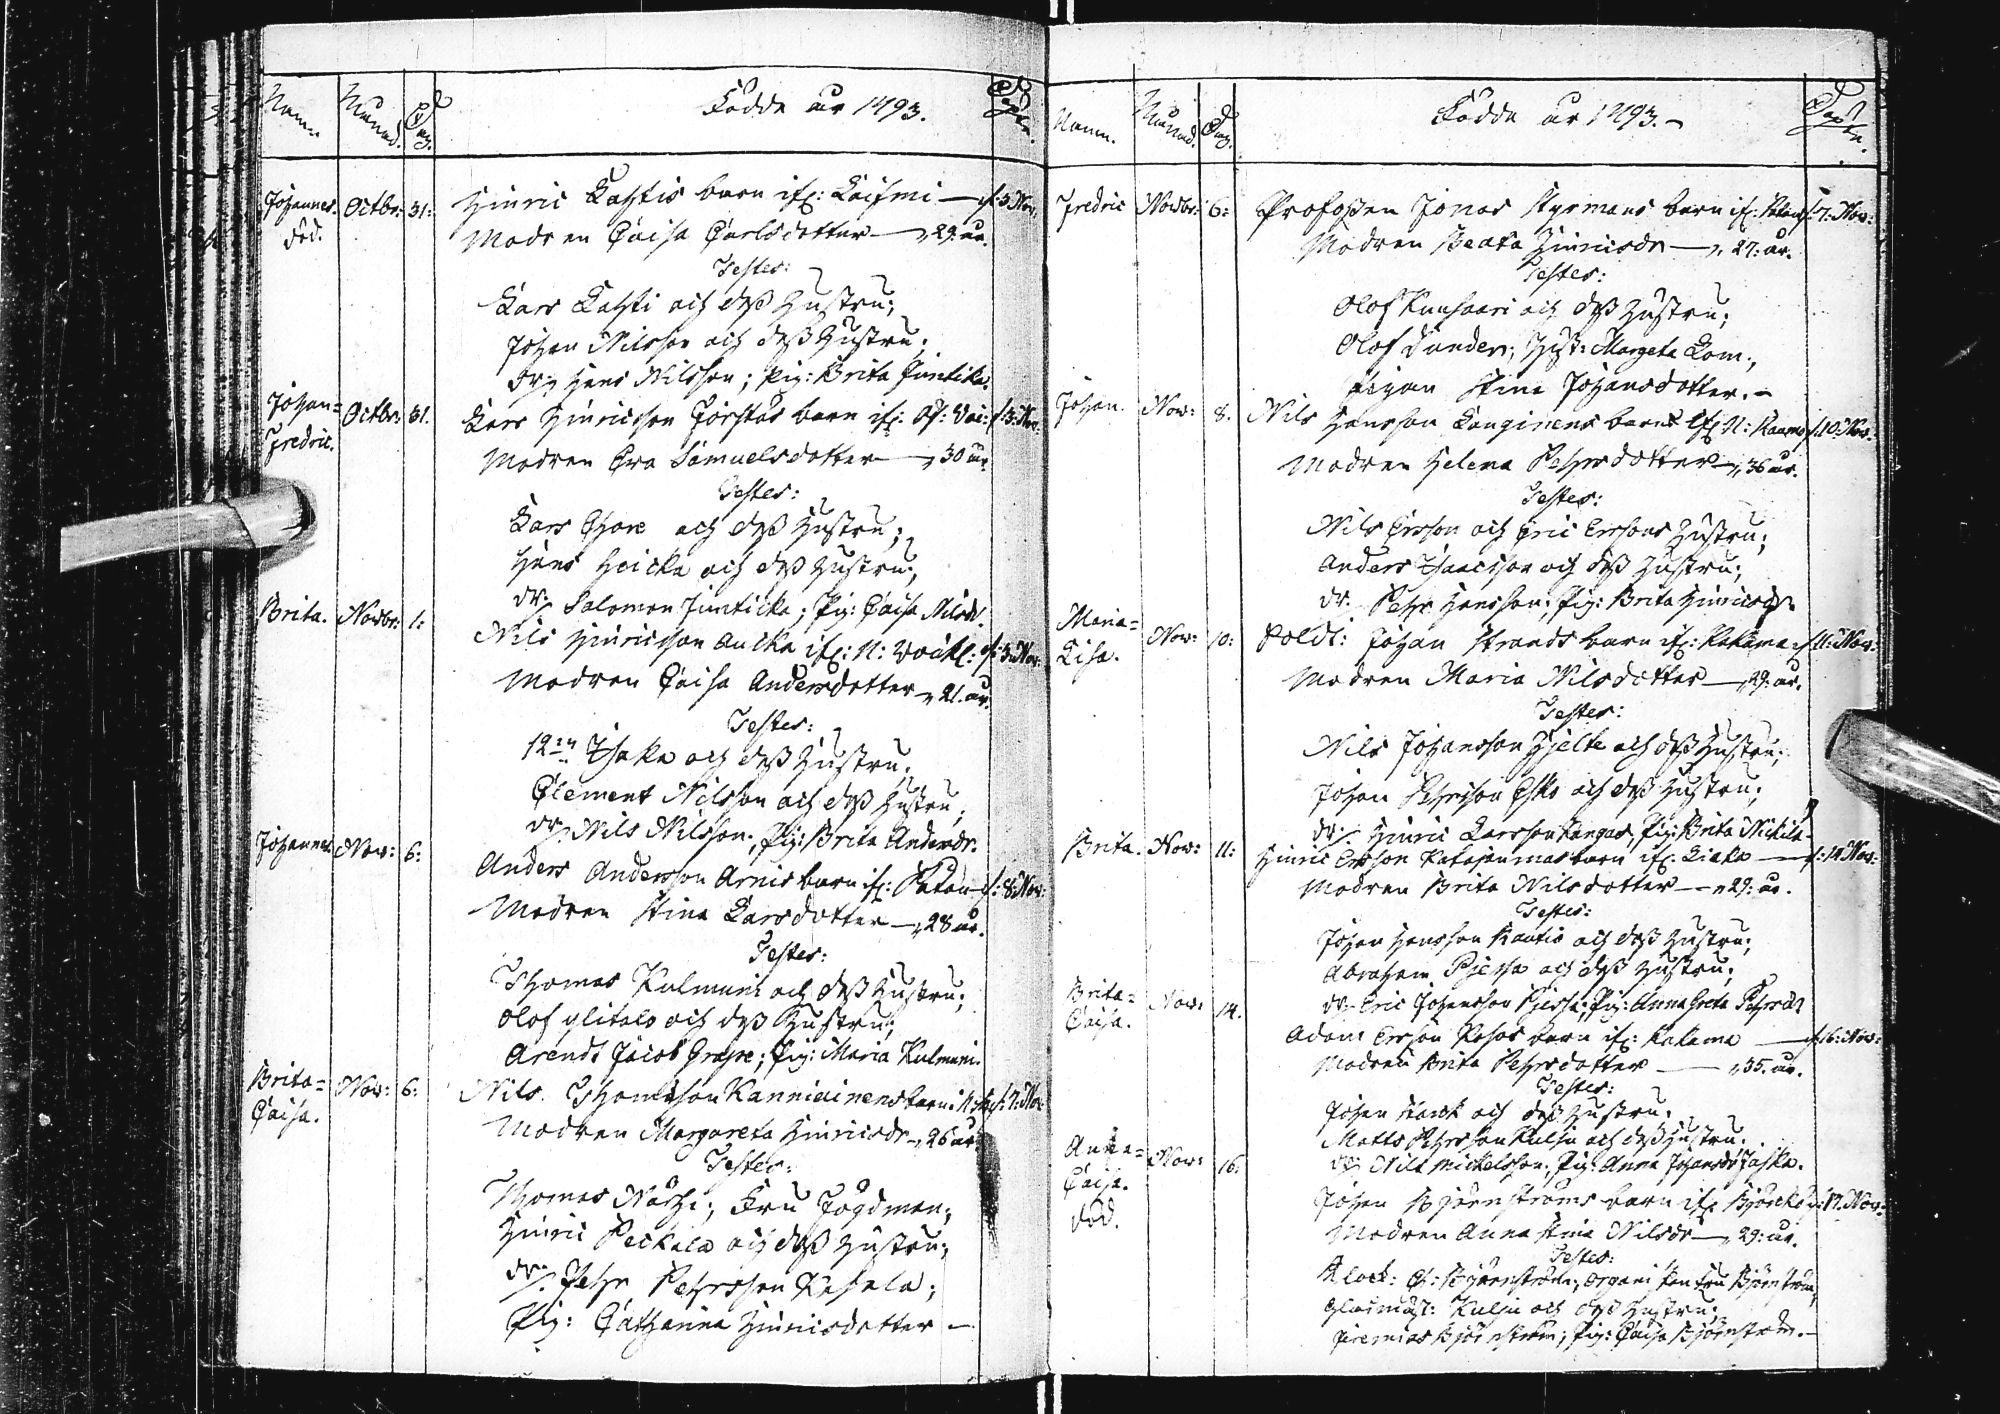 Namn. Månad. Dag. Födde år 1793. Döpte.
Johannes. Octbr: 31: Hinric Lahtis barn ifr: Laismi — d: 3 Nov.
död. Modren Caisa Carlsdotter — 29. år.
Testes:
Lars Lahti och dess Hustru;
Johan Nilsson och dess Hustru;
dr: Hans Nilsson; Pig: Brita Juntika.
Johan= Octbr: 31. Lars Hinricsson barn ifr: d: 3: Nov.
Fredric. Modren Eva Samuelsdotter — 30 år.
Testes:
Lars Thore och dess Hustru;
Hans Heicka och dess Hustru;
dr: Salomon Junticka; Pig: Caisa Nilsd.
Brita. Novbr: 1: Nils Hinricsson ifr: N: d: 3: Nov:
Modren Caisa Andersdotter 21. år.
Testes:
Isaka och dess Hustru.
Clement Nilsson och dess Hustru;
dr: Nils Nilsson; Pig: Brita Andersdr.
Johannes Nov: 6: Anders Andersson Arnis barn ifr: d: 8: Nov:
Modren Stina Larsdotter — 28 år.
Testes:
Thomas Kulmuni och dess Hustru;
Olof ylitalo och dess Hustru;
Arendt Jacob Grape; Pig: Maria Kulmuni.
Brita= Nov: 6: Nils Thomsson Kanniainens barn d: 7: Nov
Caisa. Modren Margareta Hinricsdr — 26 år.
Testes:
Thomas Närhi; Fru
Hinric Peckala och dess Hustru;
dr: Pehr Pehrsson
Pig: Catharina Hinricsdotter —
Namn. Månad. Dag. Födde år 1793. — Döpte.
Fredric Novbr: 6: Profossen Jonas Styrmans barn ifr: d: 7: Nov:
Modren Beata Hinricsdr — 27: år.
Testes:
Olof Kunsaari och dess Hustru;
Olof Dunder; Margeta
Pigan Stina Johansdotter. —
Johan. Nov: 8. Nils Hansson barn ifr: N: d: 10: Nov:
Modren Helena Pehrsdotter — 36 år.
Testes:
Nils Ersson och Eric Erssons Hustru;
Anders Isaacsson och dess Hustru;
dr: Pehr Hansson; Pig: Brita Hinricsdr
Maria= Nov: 10: Soldt: Johan Strands barn ifr: Kakama d: 11: Nov:
Lisa. Modren Maria Nilsdotter — 29: år.
Testes:
Nils Johansson Hjelte och dess Hustru;
Johan Pehrsson Esko och dess Hustru;
dr: Hinric Larsson Kangas, Pig: Brita Nickila
Brita. Nov: 11: Hinric Ersson Katajanmas barn ifr: Liaka — d: 14 Nov:
Modren Brita Nilsdotter — 29: år.
Testes:
Johan Hansson Rautio och dess Hustru;
Abraham Pjessa och dess Hustru;
dr: Eric Johansson Pjessa; Pig: Anna Greta Pehrsdr
Brita= Nov: 14. Adam Ersson barn ifr: Kakama — d: 16: Nov:
Caisa. Modren Brita Pehrsdotter — 35. år.
Testes:
Johan Starck och dess Hustru.
Matts Pehrsson Kulju och dess Hustru.
dr: Nils Mickelsson; Pig: Anna Johansdr Jaska.
Anna= Nov: 16: Johan Björnströms barn ifr d: 17. Nov:
Caisa. Modren Anna Stina Nilsdr — 29: år.
död. Testes:
Klock: Björnström; Fru Björnström;
Kulju och dess Hustru;
Jeremias Björnström; Pig: Caisa Björnström. —